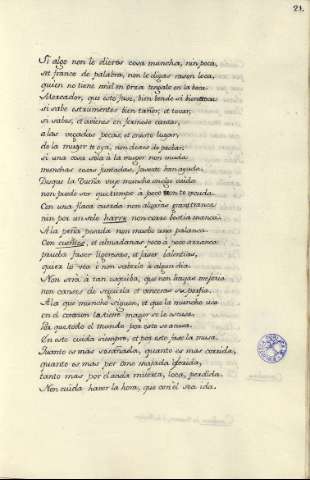 21.
Si algo non le dieras cosa muncha, nin poca,
sey franco de palabra, non le digas rason loca,
quien no tiene miel en orza tengala en la boca.
Mercador, que esto fase, bien vende
si sabe estrumentes bien tañer, et tocar,
si sabes, et avienes en fermoso cantar,
a las vegadas pocas, et onesto lugar,
de la muger te oya, non dexes de probar.
si una cosa sola á la muger non muda
munchas cosas juntadas, facerte han ayuda.
Desque la Dueña vuye muncho en ello cuida
non puede ser que tiempo á pe non te
Con una flaca cuerda non alçarás grant tranca
nin por un solo harre non corre bestia manca
A la peña pesada non mueve una palanca
Con cuños, et almadanas poco á poco arranca
prueba faser ligeresas, et faser valentias,
quiera lo vea ó non sabrelo algun dia.
Non será á tan esquiba, que non haya mejoria
non canses de seguirla et vencerás su porfia.
A la que muncho siguen, et que la muncho usa
en el corazon la tiene mager se le escusa.
Pero todo el mundo por esto se acusa.
En este cuida siempre, et por este fase la musa.
Quanto es más sosañada, quanto es mas corrida,
quanto es mas por ome majada, é ferida,
tanto mas por el anda muerta, loca, perdida.
Non cuida haver la hora, que con él sea ida.